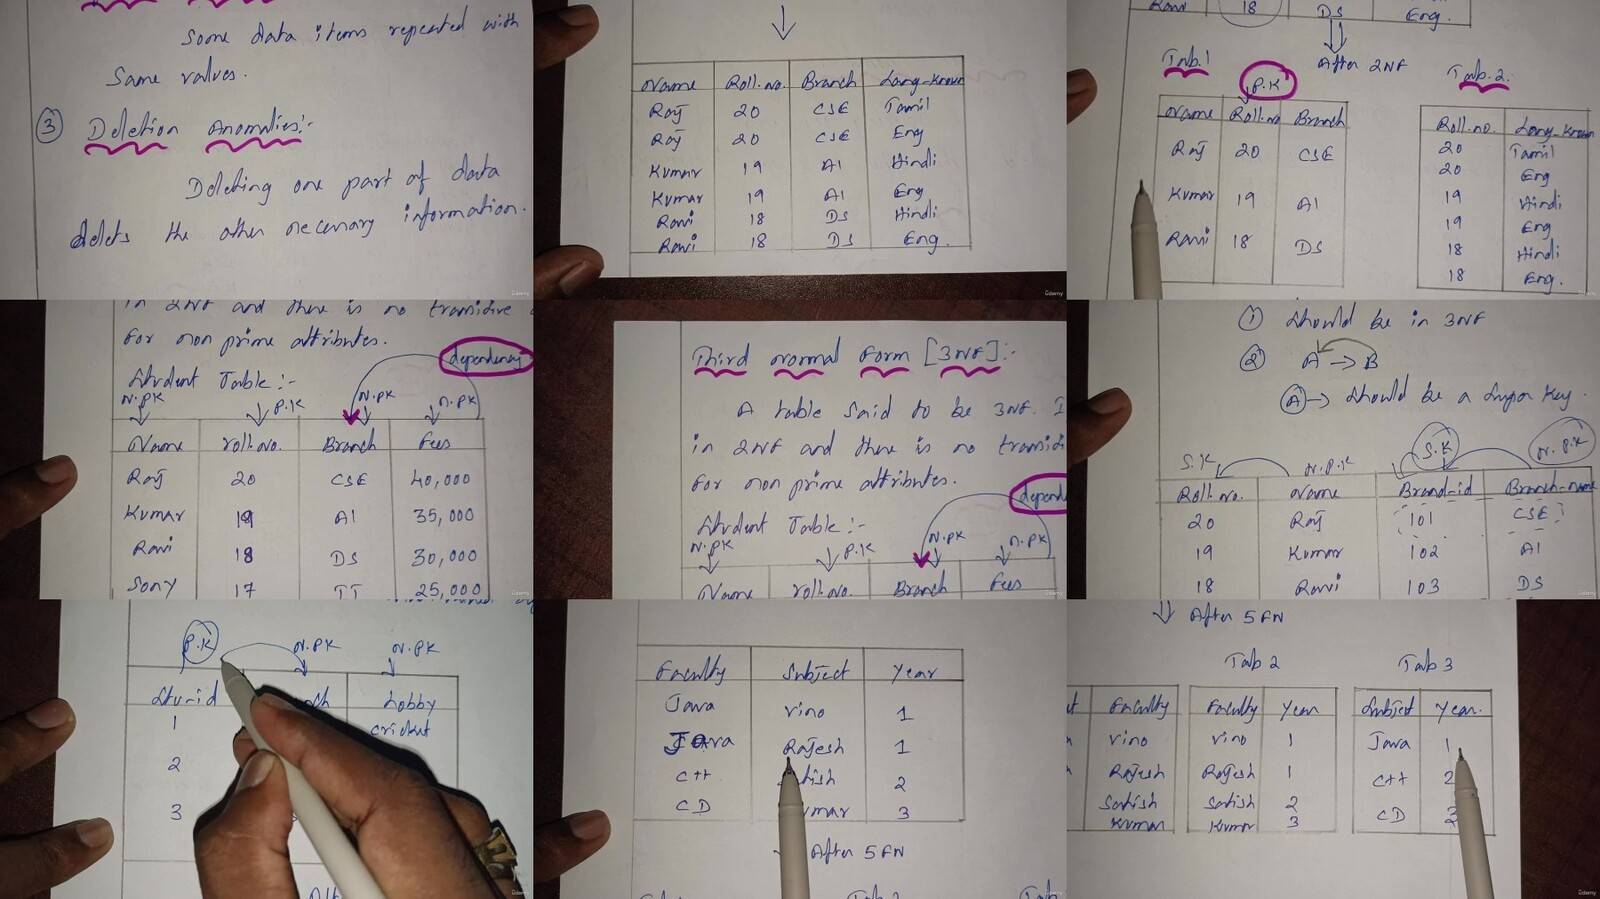 Some data items repeated with
Same values.
③ Deletion Anomalies:-
Deleting one part of data
delets the other necessary information.
Name Roll.no. Branch Lang-Known
Raj 20 CSE Tamil
Raj 20 CSE Eng
Kumar 19 AI Hindi
Kumar 19 AI Eng
Ravi 18 DS Hindi
Ravi 18 DS Eng.
Ravi 18 DS Eng.
After 2NF
Tab.1 Tab.2.
P.K
Name Roll.no Branch
Raj 20 CSE
Kumar 19 AI
Ravi 18 DS
Roll.no. Lang-Known
20 Tamil
20 Eng
19 Hindi
19 Eng
18 Hindi
18 Eng.
in 2NF and there is no transidive
for non prime attributes.
dependency
Student Table:-
N.PK P.K N.PK N.PK
Name roll.no. Branch Fees
Raj 20 CSE 40,000
Kumar 19 AI 35,000
Ravi 18 DS 30,000
Sony 17 IT 25,000
Third normal Form [3NF]:-
A table Said to be 3NF. I
in 2NF and there is no transidi
for non prime attributes.
depend
Student Table:-
N.PK P.K N.PK N.PK
Name roll.no. Branch Fees
① Should be in 3NF
② A → B
Ⓐ → Should be a Super Key.
S.K N.P.K S.K N.P.K
Roll.no. Name Brand-id Branch-name
20 Raj 101 CSE
19 Kumar 102 AI
18 Ravi 103 DS
P.K N.PK N.PK
Stu-id hobby
1 cricket
2
3
Faculty Subject Year
Java vino 1
Java Rajesh 1
C++ 2
CD 3
After 5FN
After 5FN
Tab 2 Tab 3
Faculty
vino
Rajesh
Satish
Kumar
Faculty Year
vino 1
Rajesh 1
Satish 2
Kumar 3
Subject Year.
Java 1
C++ 2
CD 3
Udemy